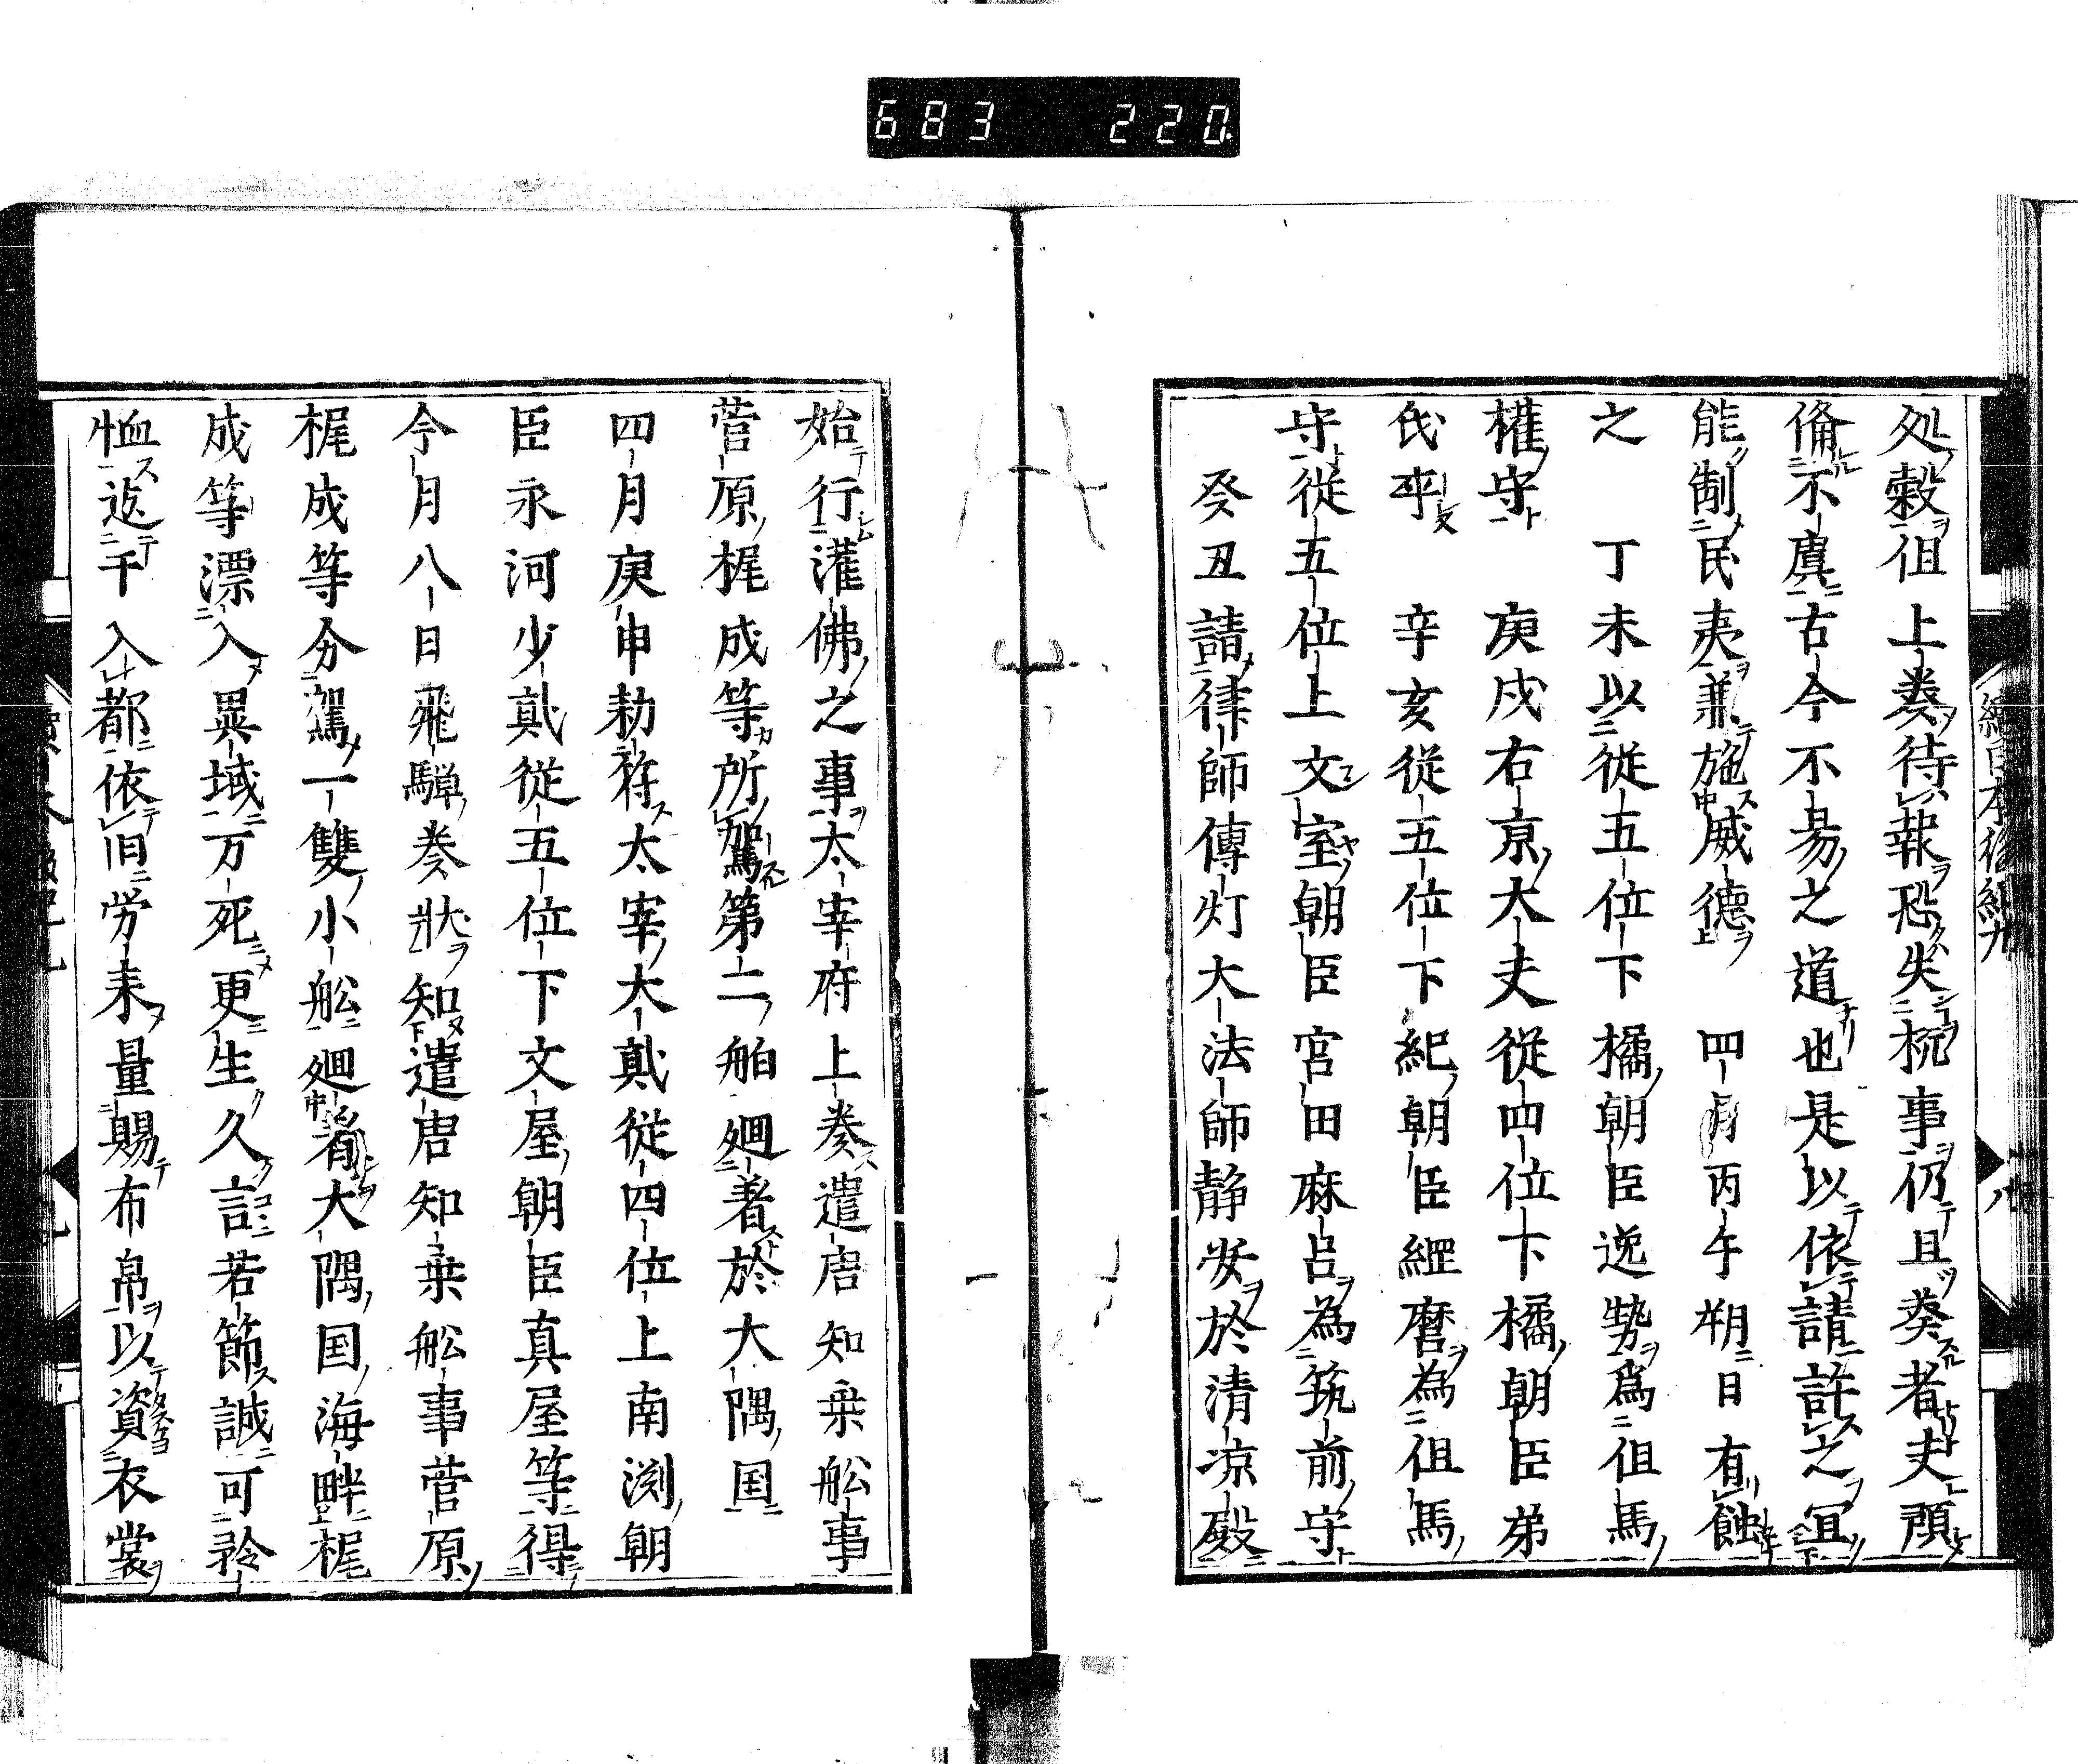 683 220
処穀徂上奏待報恐失杬事仍且癸者夫預
俻不虞古今不易之道也是以依請許之冝
能制民夷兼施威德 四月丙午朔日有蝕
之 丁未以從五位下橘朝臣逸㔟爲徂馬
權守 庚戌右京大夫從四位下橘朝臣弟
氐卒 辛亥從五位下紀朝臣綑麿為徂馬
守從五位上文室朝臣宮田麻占為筑前守
癸丑請律師傳灯大法師静安於清凉殿
續日本後紀九
八
始行灌佛之事太宰府上奏遣唐知乗舩事
菅原梶成等所駕第二舶廻著於大隅国
四月庚申勅符太宰大貳從四位上南渕朝
臣永河少貳從五位下文屋朝臣真屋等得
今月八日飛驒奏狀知遣唐知乗舩事菅原
梶成等分駕一雙小舩廻着大隅国海畔梶
成等漂入異域万死更生久言若節誠可矜
恤返千入都依旧労来量賜布帛以資衣裳